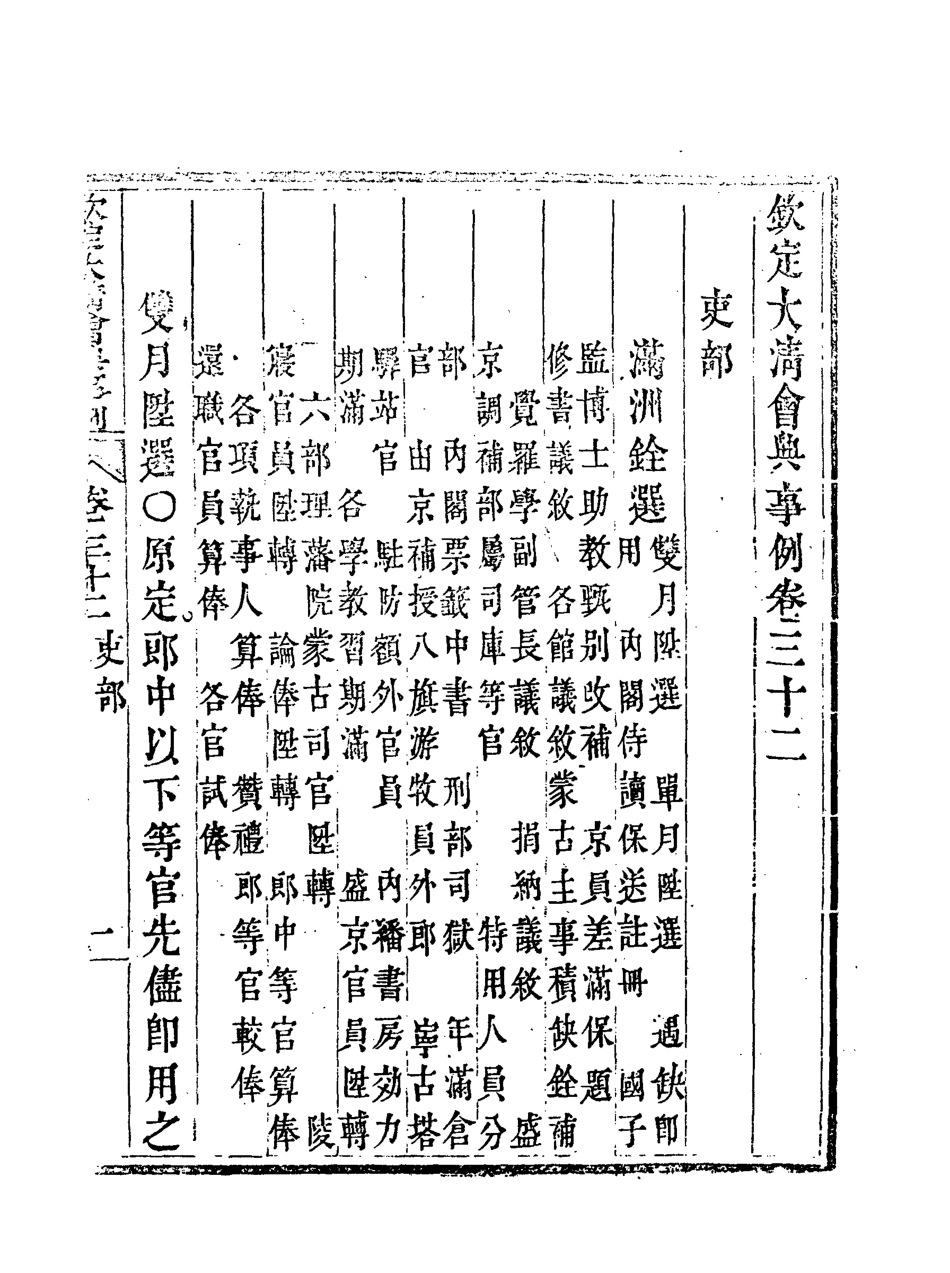 欽定大清會典事例卷三十二
吏部
滿洲銓選雙月陞選 單月陞選 遇缺即
用 內閣侍讀保送註冊 國子
監博士助教甄别改補 京員差滿保題
修書議敘 各館議敘蒙古主事積缺銓補
覺羅學副管長議敘 捐納議敘 盛
京調補部屬司庫等官 特用人員分
部 內閣票籤中書 刑部司獄 年滿倉
官 由京補授八旗游牧員外郎 寧古塔
驛站官 駐防額外官員 內繙書房効力
期滿 各學教習期滿 盛京官員陞轉
六部理藩院蒙古司官陞轉 陵
寢官員陞轉 論俸陞轉 郎中等官算俸
各項執事人算俸 贊禮郎等官較俸
還職官員算俸 各官試俸
雙月陞選○原定郎中以下等官先儘即用之
欽定大清會典事例 卷三十二 吏部 一